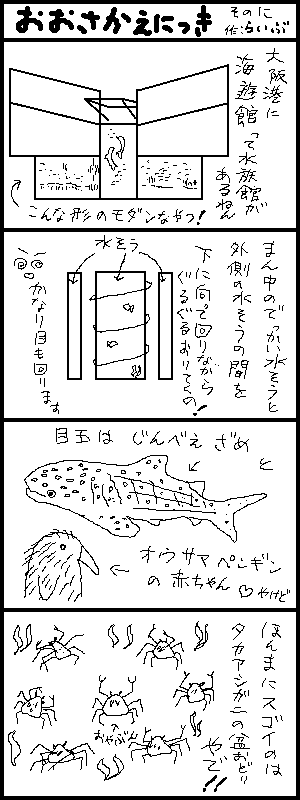 おおさかえにっき
そのに
作:らいぶ
大阪港に
海遊館
って水族館が
あるねん
こんな形のモダンなやつ!
まん中のでっかい水そうと
外側の水そうの間を
下に向って回りながら
ぐるぐるおりてくの!
水そう
かなり目も回ります
目玉は じんべえざめ と
オウサマペンギン
の赤ちゃん♡やけど
ほんまにスゴイのは
タカアシガニの盆おどり
やで!!
おやぶん